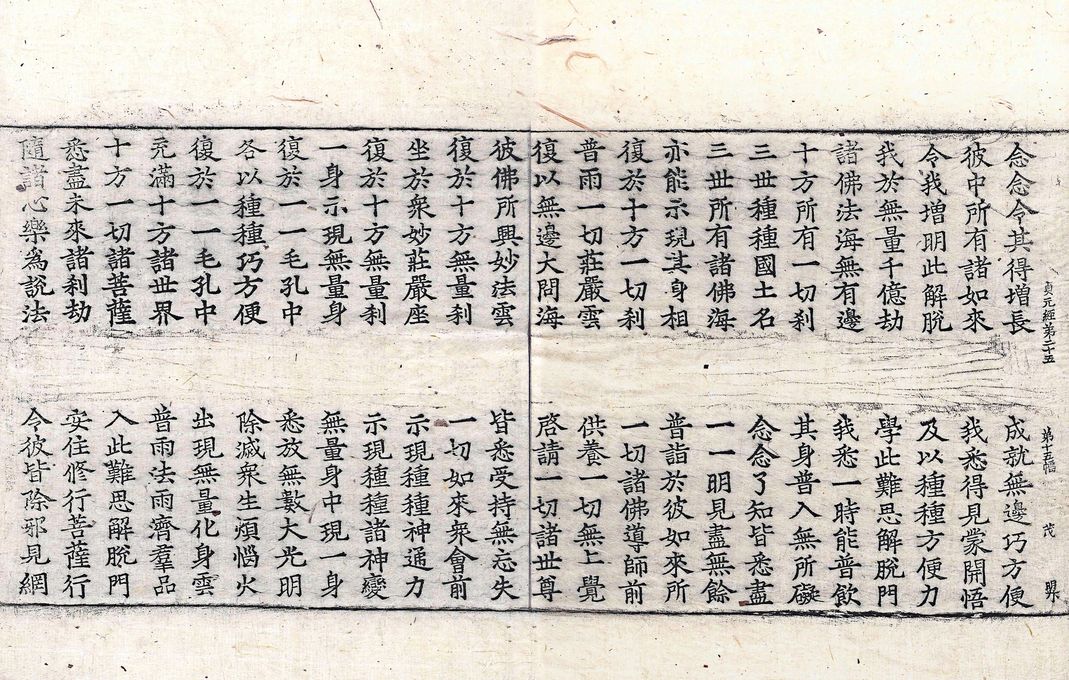 貞元經第二十五 茂
念念令其得增長 成就無邊巧方便
彼中所有諸如來 我悉得見蒙開悟
令我增明此解脫 及以種種方便力
我於無量千億劫 學此難思解脫門
諸佛法海無有邊 我悉一時能普飲
十方所有一切刹 其身普入無所礙
三世種種國土名 念念了知皆悉盡
三世所有諸佛海 一一明見盡無餘
亦能示現其身相 普詣於彼如來所
復於十方一切刹 一切諸佛導師前
普雨一切莊嚴雲 供養一切無上覺
復以無邊大問海 啓請一切諸世尊
彼佛所興妙法雲 皆悉受持無忘失
復於十方無量刹 一切如來衆會前
坐於衆妙莊嚴座 示現種種神通力
復於十方無量刹 示現種種諸神變
一身示現無量身 無量身中現一身
復於一一毛孔中 悉放無數大光明
各以種種巧方便 除滅衆生煩惱火
復於一一毛孔中 出現無量化身雲
充滿十方諸世界 普雨法雨濟羣品
十方一切諸菩薩 入此難思解脫門
悉盡未來諸刹劫 安住修行菩薩行
隨諸心樂為說法 令彼皆除邪見網